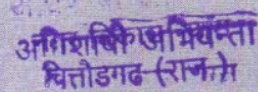 अधिशाषी अभियन्ता
चित्तौडगढ (राज.)